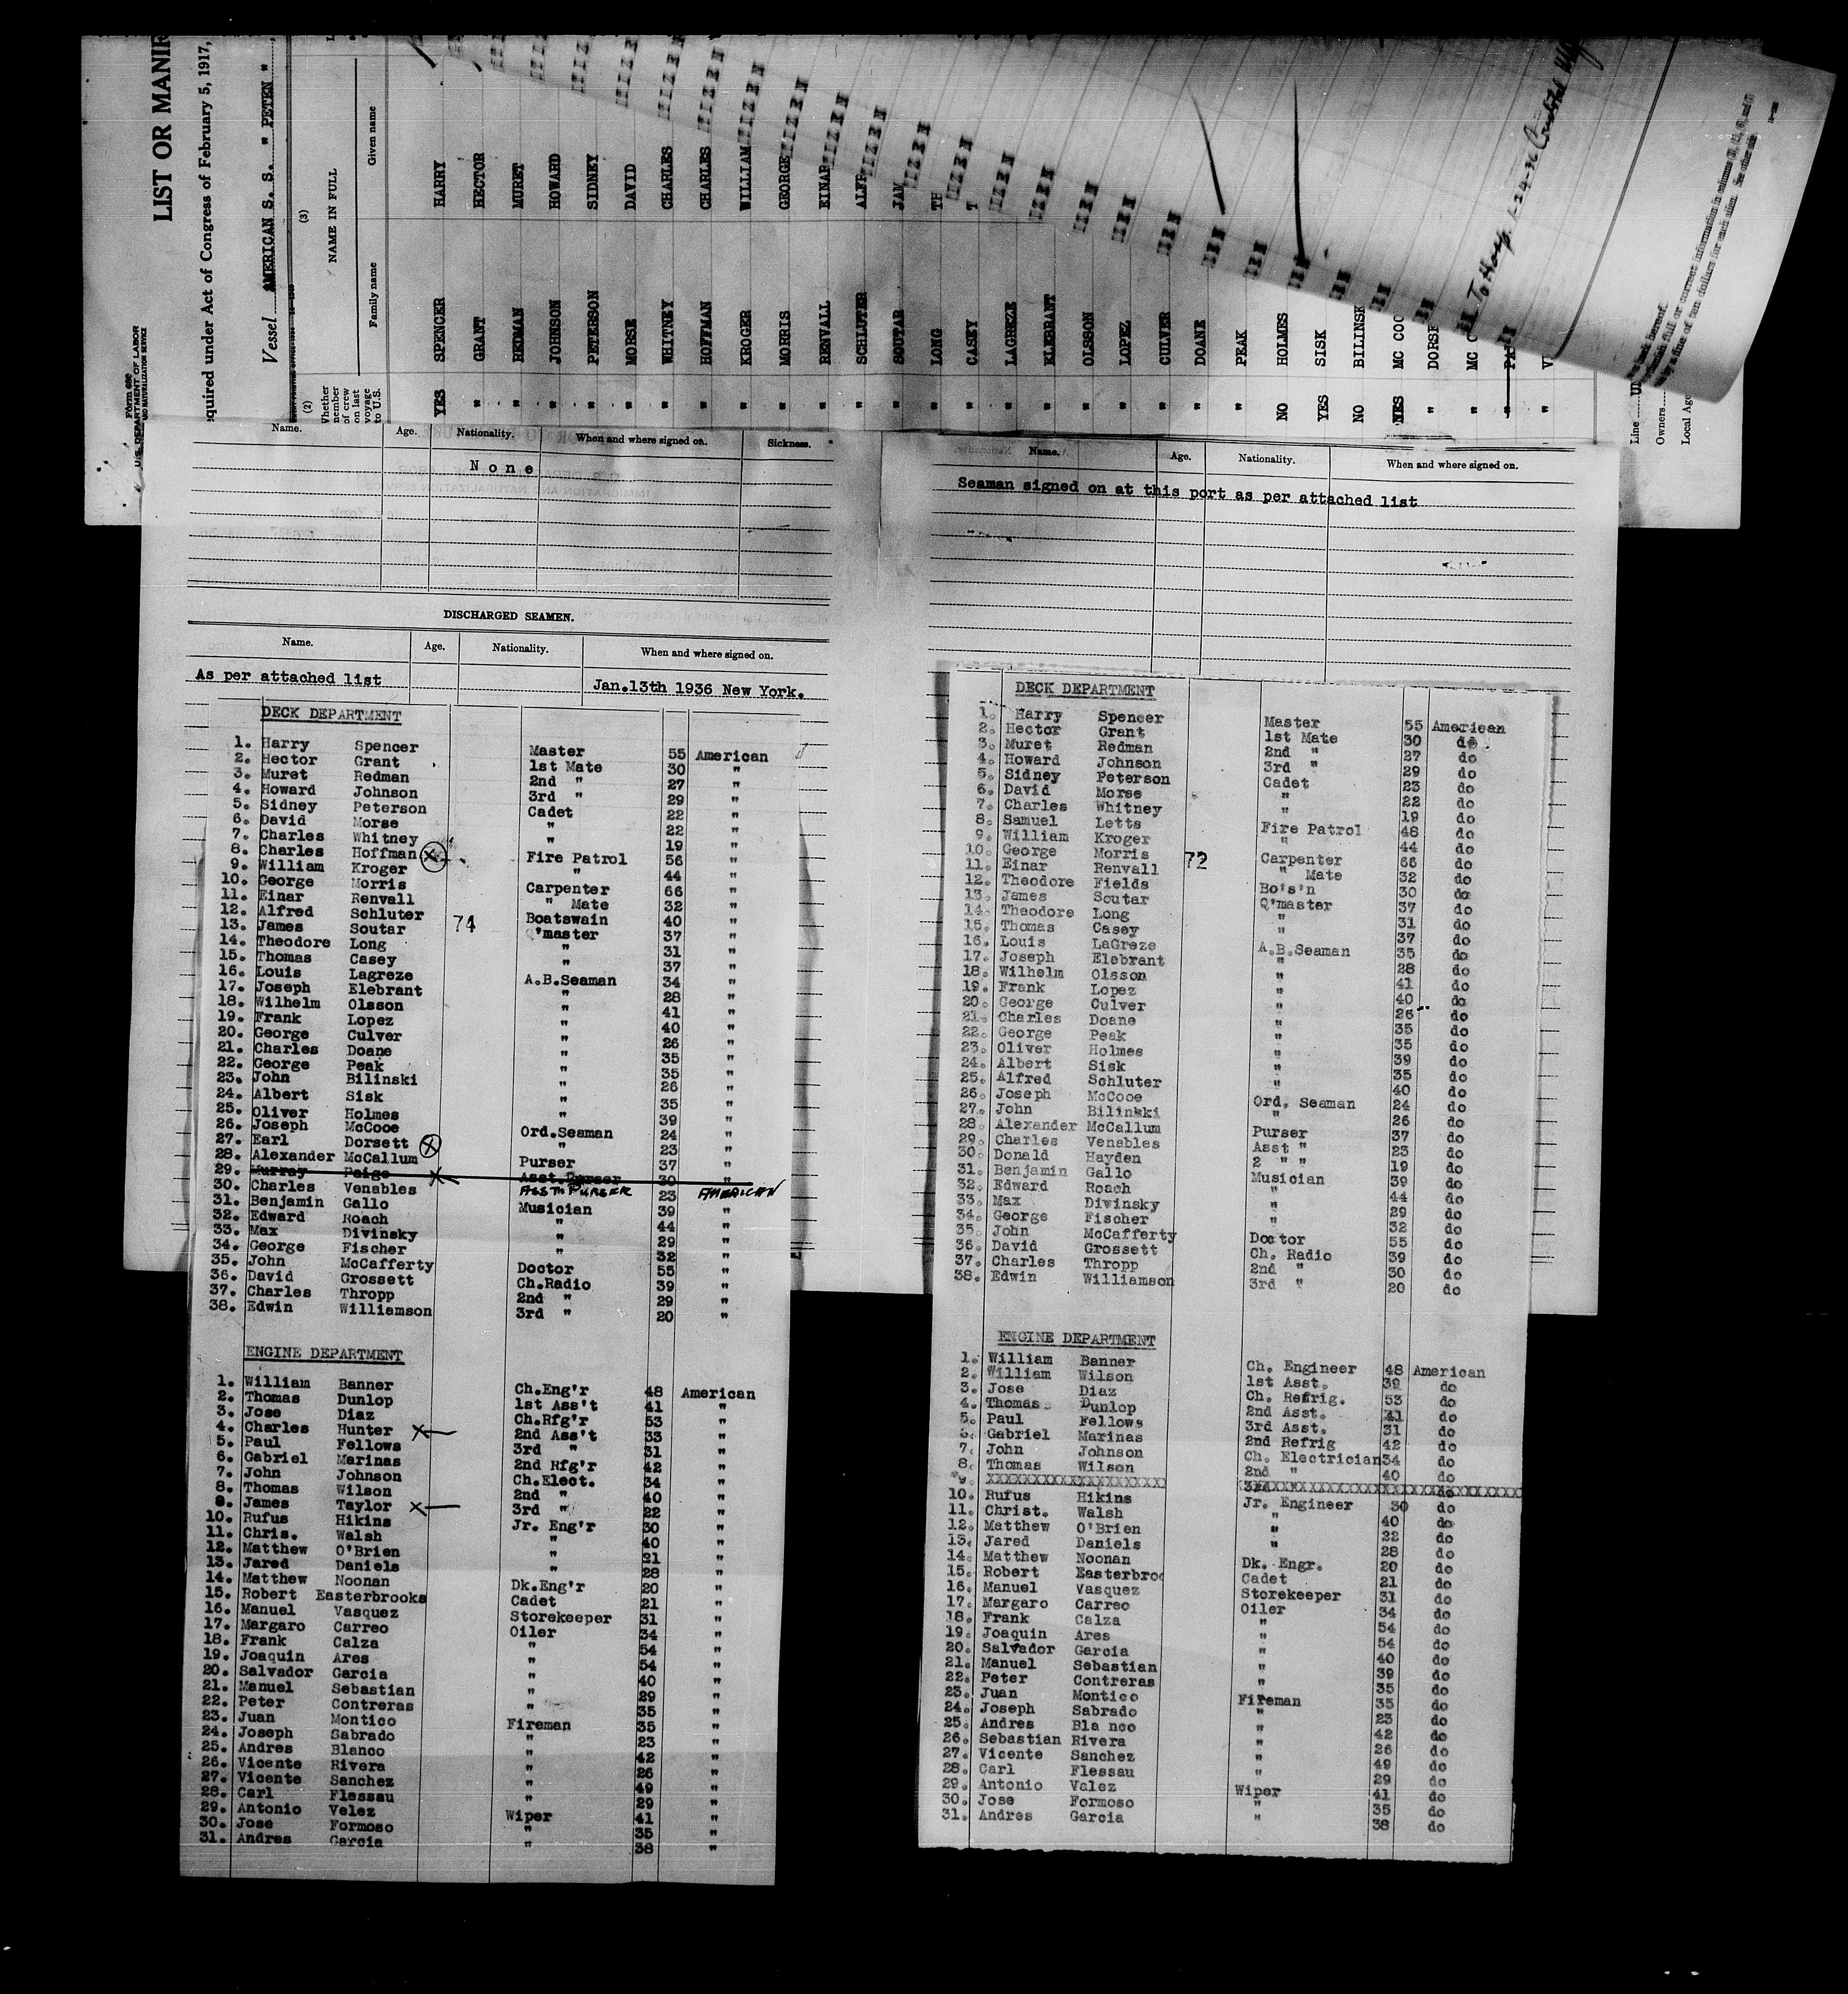 LIST OR MANIF
equired under Act of Congress of February 5, 1917,
Vessel AMERICAN S. S. " PETEN "
Form 680
U. S. DEPARTMENT OF LABOR
(2)
Whether member of crew on last voyage to U.S.
(3)
NAME IN FULL
Family name Given name
YES SPENCER HARRY
" GRANT HECTOR
" REDMAN MURET
" JOHNSON HOWARD
" PETERSON SIDNEY
" MORSE DAVID
" WHITNEY CHARLES
" HOFFMAN CHARLES
" KROGER WILLIAM
" MORRIS GEORGE
" RENVALL EINAR
" SCHLUTER ALFR
" SOUTAR JAM
" LONG TH
" CASEY T
" LAGREZE
" ELEBRANT
" OLSSON
" LOPEZ
" CULVER
" DOANE
" PEAK
NO HOLMES
YES SISK
NO BILINSK
MC COO
" DORSE
" MC C
" PAI
" V
To Hosp. 1-24-36
Line
Owners
Local Age
Name. Age. Nationality. When and where signed on. Sickness.
None
DISCHARGED SEAMEN.
Name. Age. Nationality. When and where signed on.
As per attached list Jan.13th 1936 New York.
DECK DEPARTMENT
1. Harry Spencer Master 55 American
2. Hector Grant 1st Mate 30 "
3. Muret Redman 2nd " 27 "
4. Howard Johnson 3rd " 29 "
5. Sidney Peterson Cadet 22 "
6. David Morse " 22 "
7. Charles Whitney " 19 "
8. Charles Hoffman X Fire Patrol 56 "
9. William Kroger " 44 "
10. George Morris Carpenter 66 "
11. Einar Renvall " Mate 32 "
12. Alfred Schluter Boatswain 40 "
13. James Soutar 74 Q'master 37 "
14. Theodore Long " 31 "
15. Thomas Casey " 37 "
16. Louis Lagreze A.B.Seaman 34 "
17. Joseph Elebrant " 28 "
18. Wilhelm Olsson " 41 "
19. Frank Lopez " 40 "
20. George Culver " 26 "
21. Charles Doane " 35 "
22. George Peak " 35 "
23. John Bilinski " 26 "
24. Albert Sisk " 35 "
25. Oliver Holmes " 39 "
26. Joseph McCooe Ord.Seaman 24 "
27. Earl Dorsett X " 23 "
28. Alexander McCallum Purser 37 "
29. Murray Paige X Asst.Purser 30 "
30. Charles Venables ASST PURSER 23 AMERICAN
31. Benjamin Gallo Musician 39 "
32. Edward Roach " 44 "
33. Max Divinsky " 29 "
34. George Fischer " 32 "
35. John McCafferty Doctor 55 "
36. David Grossett Ch.Radio 39 "
37. Charles Thropp 2nd " 29 "
38. Edwin Williamson 3rd " 20 "
ENGINE DEPARTMENT
1. William Banner Ch.Eng'r 48 American
2. Thomas Dunlop 1st Ass't 41 "
3. Jose Diaz Ch.Rfg'r 53 "
4. Charles Hunter X 2nd Ass't 33 "
5. Paul Fellows 3rd " 31 "
6. Gabriel Marinas 2nd Rfg'r 42 "
7. John Johnson Ch.Elect. 34 "
8. Thomas Wilson 2nd " 40 "
9. James Taylor X 3rd " 22 "
10. Rufus Hikins Jr. Eng'r 30 "
11. Chris. Walsh " 40 "
12. Matthew O'Brien " 21 "
13. Jared Daniels " 28 "
14. Matthew Noonan Dk.Eng'r 20 "
15. Robert Easterbrooks Cadet 21 "
16. Manuel Vasquez Storekeeper 31 "
17. Margaro Carreo Oiler 34 "
18. Frank Calza " 54 "
19. Joaquin Ares " 54 "
20. Salvador Garcia " 40 "
21. Manuel Sebastian " 29 "
22. Peter Contreras " 35 "
23. Juan Montico Fireman 35 "
24. Joseph Sabrado " 23 "
25. Andres Blanco " 42 "
26. Vicente Rivera " 26 "
27. Vicente Sanchez " 49 "
28. Carl Flessau " 29 "
29. Antonio Velez Wiper 41 "
30. Jose Formoso " 35 "
31. Andres Garcia " 38 "
Name. Age. Nationality. When and where signed on.
Seaman signed on at this port as per attached list
DECK DEPARTMENT
1. Harry Spencer Master 55 American
2. Hector Grant 1st Mate 30 do
3. Muret Redman 2nd " 27 do
4. Howard Johnson 3rd " 29 do
5. Sidney Peterson Cadet 23 do
6. David Morse " 22 do
7. Charles Whitney " 19 do
8. Samuel Letts Fire Patrol 48 do
9. William Kroger " 44 do
10. George Morris 72 Carpenter 66 do
11. Einar Renvall " Mate 32 do
12. Theodore Fields Bo's'n 30 do
13. James Soutar Q'master 37 do
14. Theodore Long " 31 do
15. Thomas Casey " 37 do
16. Louis LaGreze A.B.Seaman 35 do
17. Joseph Elebrant " 28 do
18. Wilhelm Olsson " 41 do
19. Frank Lopez " 40 do
20. George Culver " 26 do
21. Charles Doane " 35 do
22. George Peak " 35 do
23. Oliver Holmes " 39 do
24. Albert Sisk " 35 do
25. Alfred Schluter " 40 do
26. Joseph McCooe Ord. Seaman 24 do
27. John Bilinski " 26 do
28. Alexander McCallum Purser 37 do
29. Charles Venables Asst " 23 do
30. Donald Hayden 2 " " 19 do
31. Benjamin Gallo Musician 39 do
32. Edward Roach " 44 do
33. Max Divinsky " 29 do
34. George Fischer " 32 do
35. John McCafferty Doctor 55 do
36. David Grossett Ch. Radio 39 do
37. Charles Thropp 2nd " 30 do
38. Edwin Williamson 3rd " 20 do
ENGINE DEPARTMENT
1. William Banner Ch. Engineer 48 American
2. William Wilson 1st Asst. 39 do
3. Jose Diaz Ch. Refrig. 53 do
4. Thomas Dunlop 2nd Asst. 41 do
5. Paul Fellows 3rd Asst. 31 do
6. Gabriel Marinas 2nd Refrig 42 do
7. John Johnson Ch. Electrician 34 do
8. Thomas Wilson 2nd " 40 do
9. XXXXXXXXXXXXXXXXXXXX
10. Rufus Hikins Jr. Engineer 30 do
11. Christ. Walsh " 40 do
12. Matthew O'Brien " 22 do
13. Jared Daniels " 28 do
14. Matthew Noonan Dk. Engr. 20 do
15. Robert Easterbroo Cadet 21 do
16. Manuel Vasquez Storekeeper 31 do
17. Margaro Carreo Oiler 34 do
18. Frank Calza " 54 do
19. Joaquin Ares " 54 do
20. Salvador Garcia " 40 do
21. Manuel Sebastian " 39 do
22. Peter Contreras " 35 do
23. Juan Montico Fireman 35 do
24. Joseph Sabrado " 23 do
25. Andres Bla nco " 42 do
26. Sebastian Rivera " 26 do
27. Vicente Sanchez " 49 do
28. Carl Flessau " 29 do
29. Antonio Valez Wiper 41 do
30. Jose Formoso " 35 do
31. Andres Garcia " 38 do